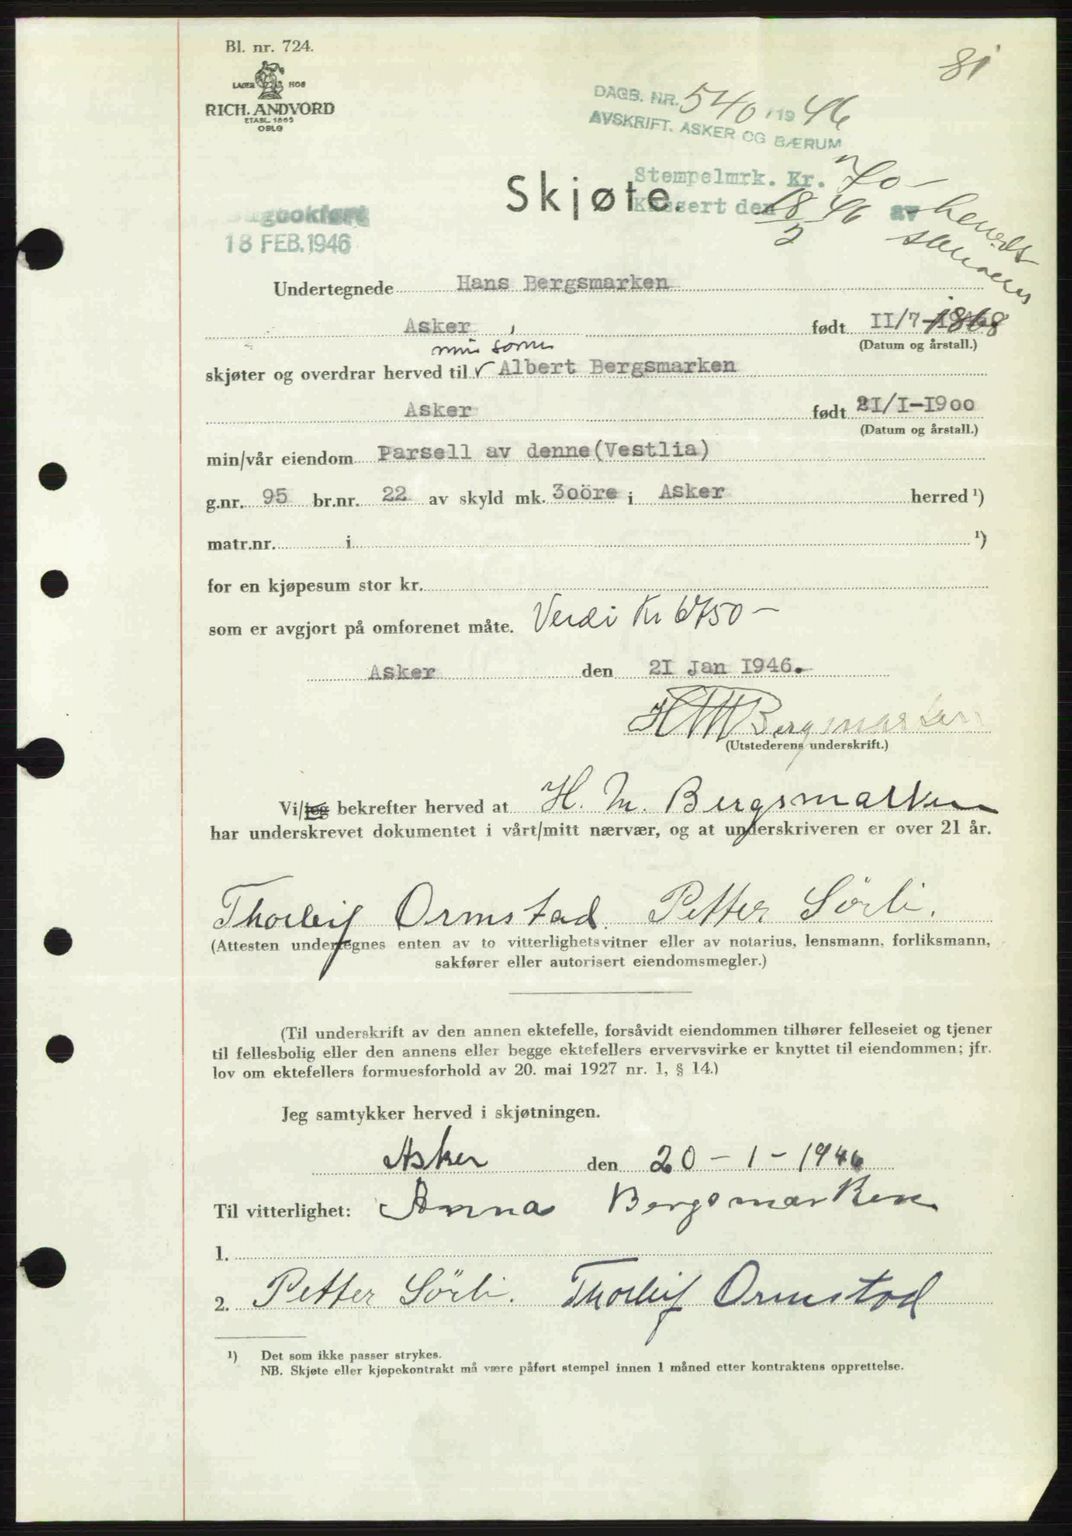 Bl. nr. 724.
81
LAGER HOS
RICH. ANDVORD
ETABL. 1865
OSLO
DAGB. NR. 540 /19 46
AVSKRIFT. ASKER OG BÆRUM
Stempelmrk. Kr. 70-
Skjøte.
Kassert den 18/2 46 av
Dagbokført
18 FEB. 1946
Undertegnede Hans Bergsmarken
Asker født II/7-1868
(Datum og årstall.)
min sønn
skjøter og overdrar herved til Albert Bergsmarken
Asker født 21/I-I900
(Datum og årstall.)
min/vår eiendom Parsell av denne(Vestlia)
g.nr. 95 br.nr. 22 av skyld mk. 3oöre i Asker herred ¹)
matr.nr. i ¹)
for en kjøpesum stor kr.
som er avgjort på omforenet måte. Verdi Kr 6750-
Asker den 2I Jan I946.
H M Bergsmarken
(Utstederens underskrift.)
Vi/jeg bekrefter herved at H. M. Bergsmarken
har underskrevet dokumentet i vårt/mitt nærvær, og at underskriveren er over 21 år.
Thorleif Ormstad. Petter Sörli.
(Attesten undertegnes enten av to vitterlighetsvitner eller av notarius, lensmann, forliksmann,
sakfører eller autorisert eiendomsmegler.)
(Til underskrift av den annen ektefelle, forsåvidt eiendommen tilhører felleseiet og tjener
til fellesbolig eller den annens eller begge ektefellers ervervsvirke er knyttet til eiendommen; jfr.
lov om ektefellers formuesforhold av 20. mai 1927 nr. 1, § 14.)
Jeg samtykker herved i skjøtningen.
Asker den 20-1-1946
Til vitterlighet: Anna Bergsmarken
1.
2. Petter Sörli. Thorleif Ormstad
¹) Det som ikke passer strykes.
NB. Skjøte eller kjøpekontrakt må være påført stempel innen 1 måned etter kontraktens opprettelse.